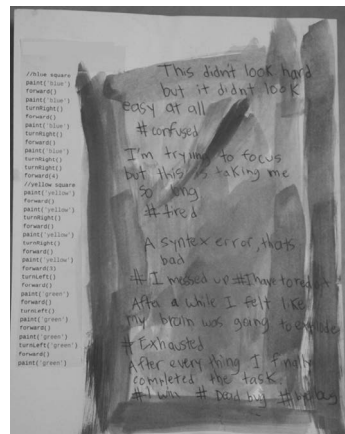 //blue square
paint('blue')
forward()
paint('blue')
turnRight()
forward()
paint('blue')
turnRight()
forward()
paint('blue')
turnRight()
turnRight()
forward(4)
//yellow square
paint('yellow')
forward()
paint('yellow')
turnRight()
forward()
paint('yellow')
turnRight()
forward()
paint('yellow')
forward(3)
turnLeft()
forward()
paint('green')
forward()
turnLeft()
paint('green')
forward()
paint('green')
turnLeft('green')
forward()
paint('green')
This didn't look hard
but it didnt look
easy at all
#confused
I'm trying to focus
but this is taking me
so long
#tired
A syntex error, thats
bad
# I messed up #I have to redo it
Afta a while I felt like
my brain was going to explode
# Exhausted
After every thing I finally
completed the task.
# I won # Dead bug # bye bug